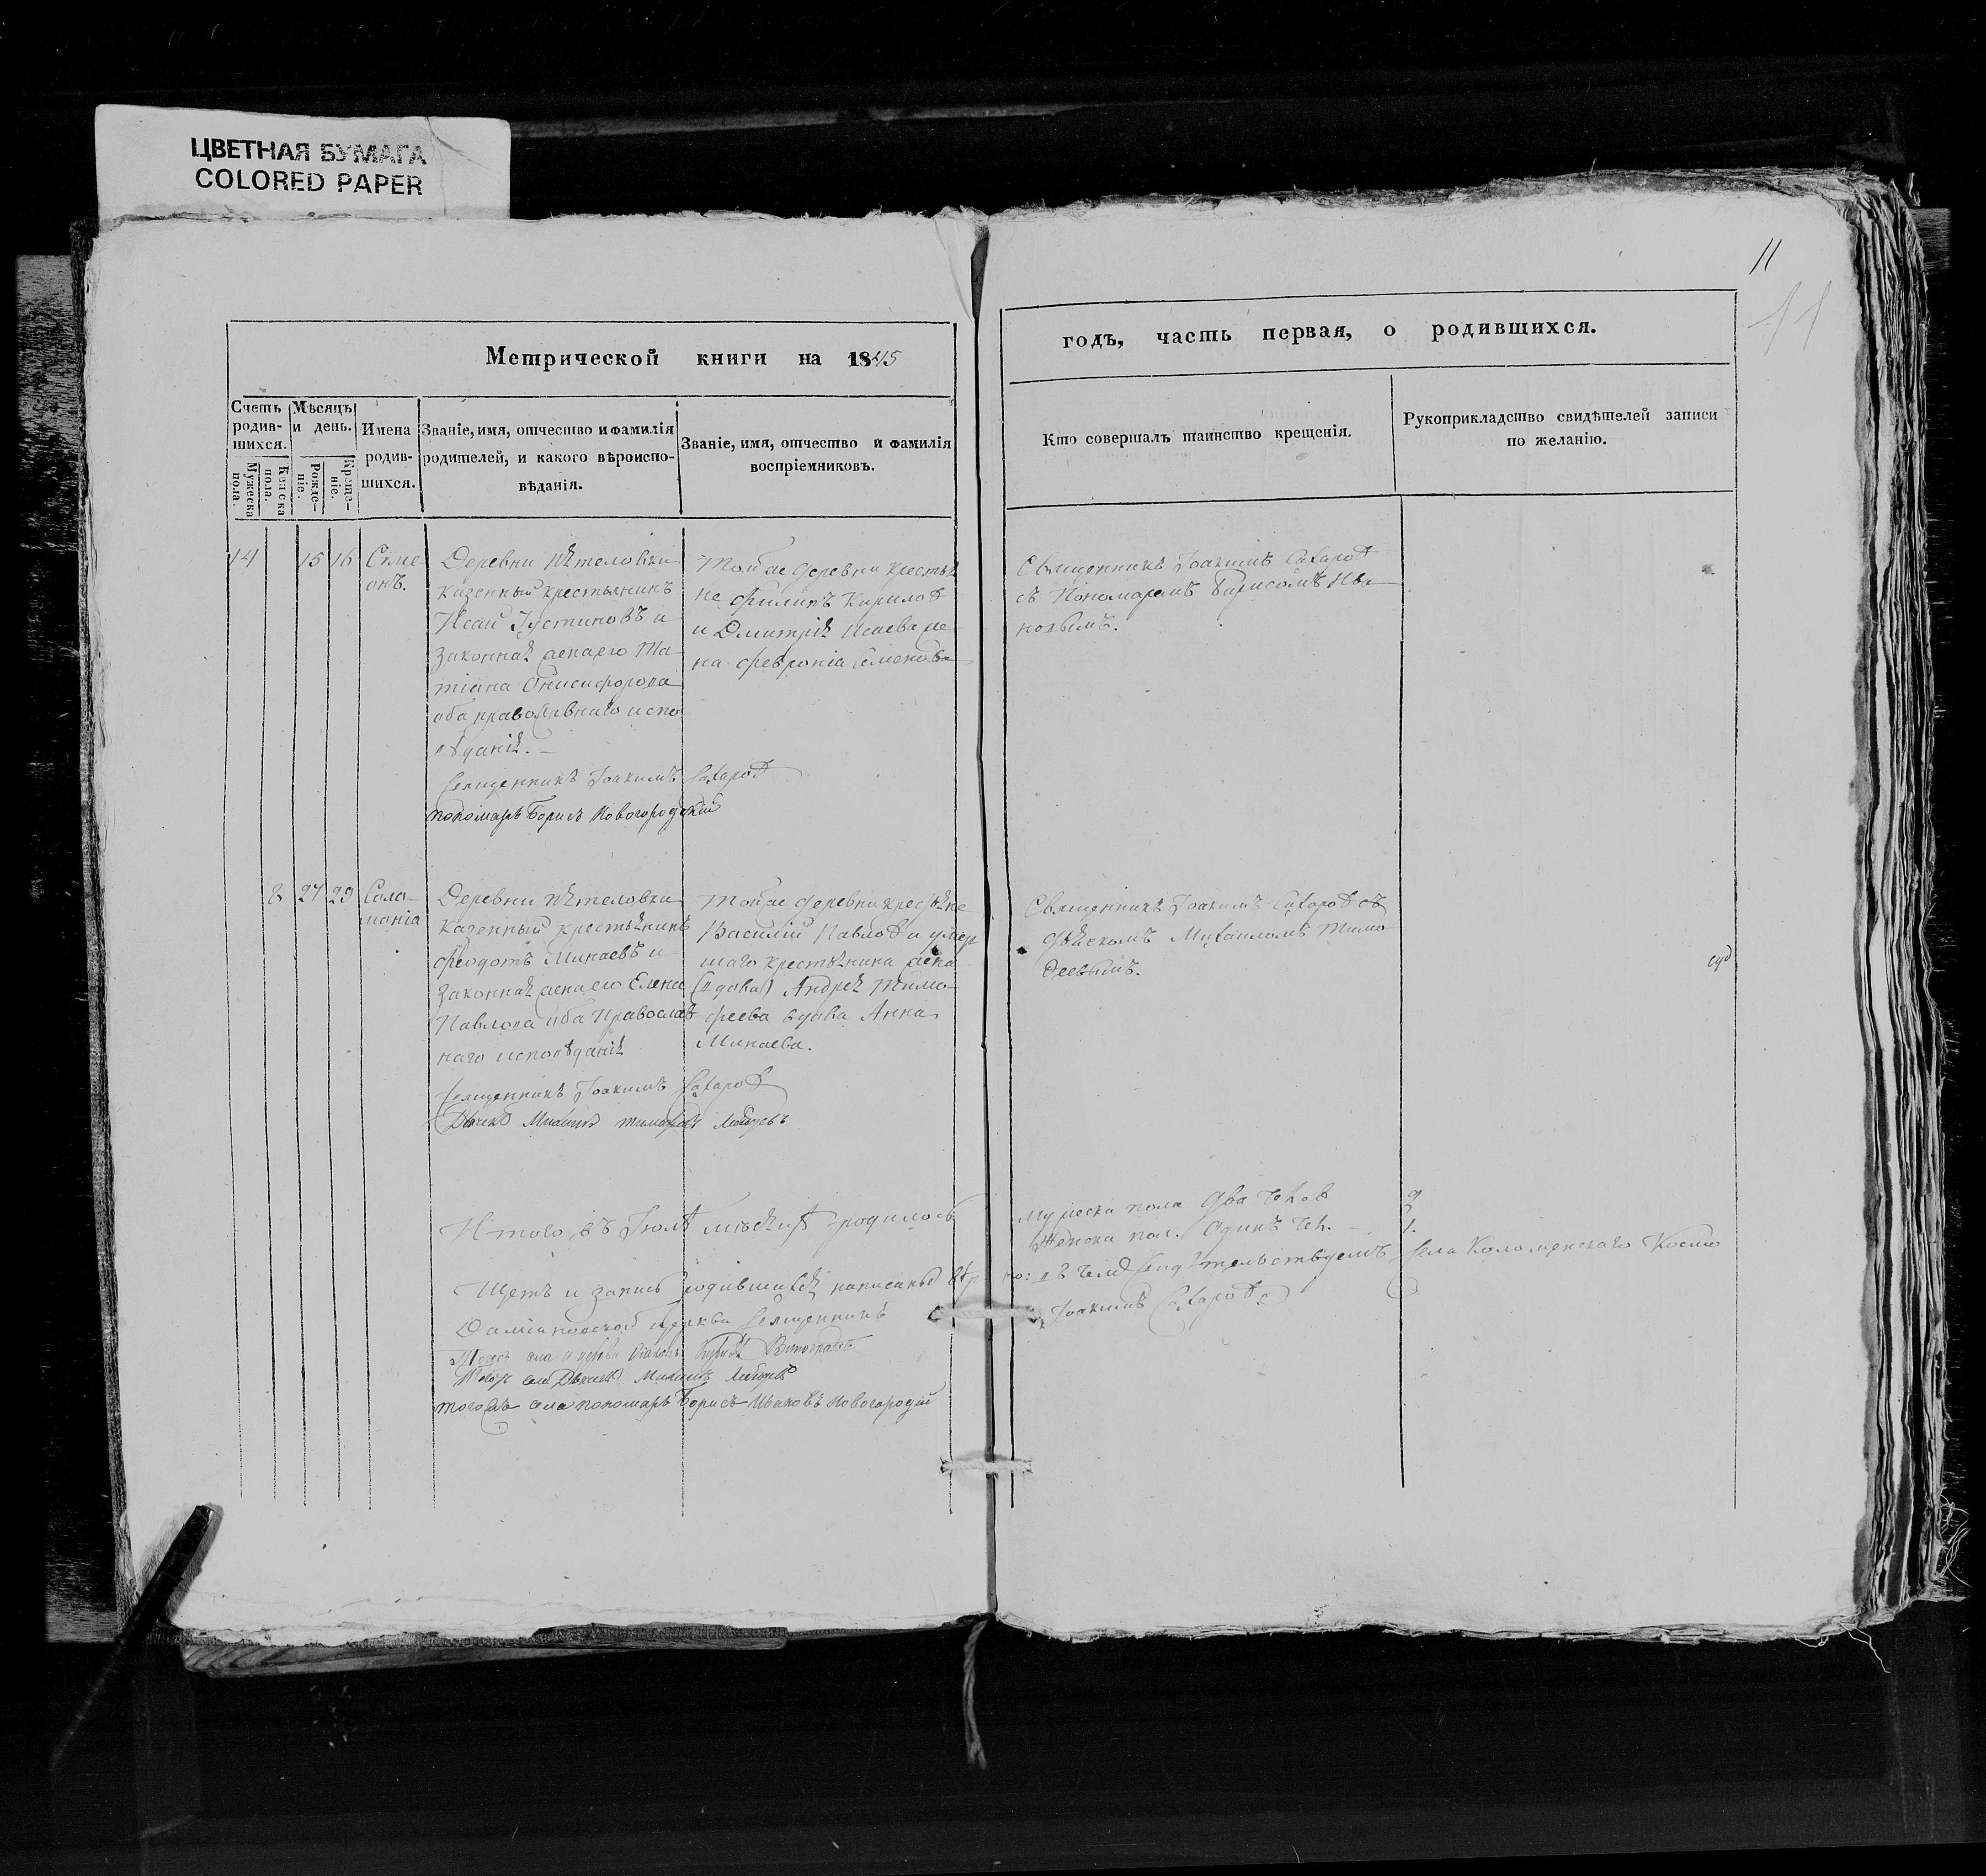 ЦВЕТНАЯ БУМАГА
COLORED PAPER
11
11
Метрической книги на 1845
годъ, часть первая, о родившихся.
Счетъ родив-шихся.
Мужеска пола.
Женска пола.
Мѣсяцъ и день.
Рожде-ніе.
Креще-ніе.
Имена родив-шихся.
Званіе, имя, отчество и фамилія
родителей, и какого вѣроиспо-
вѣданія.
Званіе, имя, отчество и фамилія
воспріемниковъ.
Кто совершалъ таинство крещенія.
Рукоприкладство свидѣтелей записи
по желанію.
14 15 16
Симе
онъ.
Деревни
казенный крестьянинъ
Исаи Іустиновъ и
законная жена его Та
тіана Онисифорова
оба православнаго испо
вѣданія.
Священникъ Іоакимъ Сахаровъ
пономарь Борисъ Новогородскій
Той же деревни крестья
не Филипъ Кириловъ
и Дмитрія Исаева же
на Феврониія Семенова
Священникъ Іоакимъ Сахаровъ
съ Пономаремъ Борисомъ Ива
новымъ.
8 27 29
Соло-
монія
Деревни
казенный крестьянинъ
Феодотъ Минаевъ и
законная жена его Елена
Павлова оба Православ
наго исповѣданія
Священникъ Іоакимъ Сахаровъ
Дьячекъ Михаилъ
Той же деревни крестьяне
Василій Павловъ и умер
шаго крестьянина жена
(вдова) Андрея Тимо-
феева вдова Анна
Минаева.
Священникъ Іоакимъ Сахаровъ съ
дьячкомъ Михаиломъ Тимо
феевымъ.
Итого въ Іюлѣ мѣсяцѣ родилось
Мужеска пола два чел. 2
Женска пол. Одинъ чел. — 1.
Щетъ и запись родившихся написаны вѣр
но: въ чемъ свидѣтельствуемъ села Коломенскаго Космо
Даміановской церкви священникъ
Іоакимъ Сахаровъ
того же села пономарь Борисъ Ивановъ Новогородскій